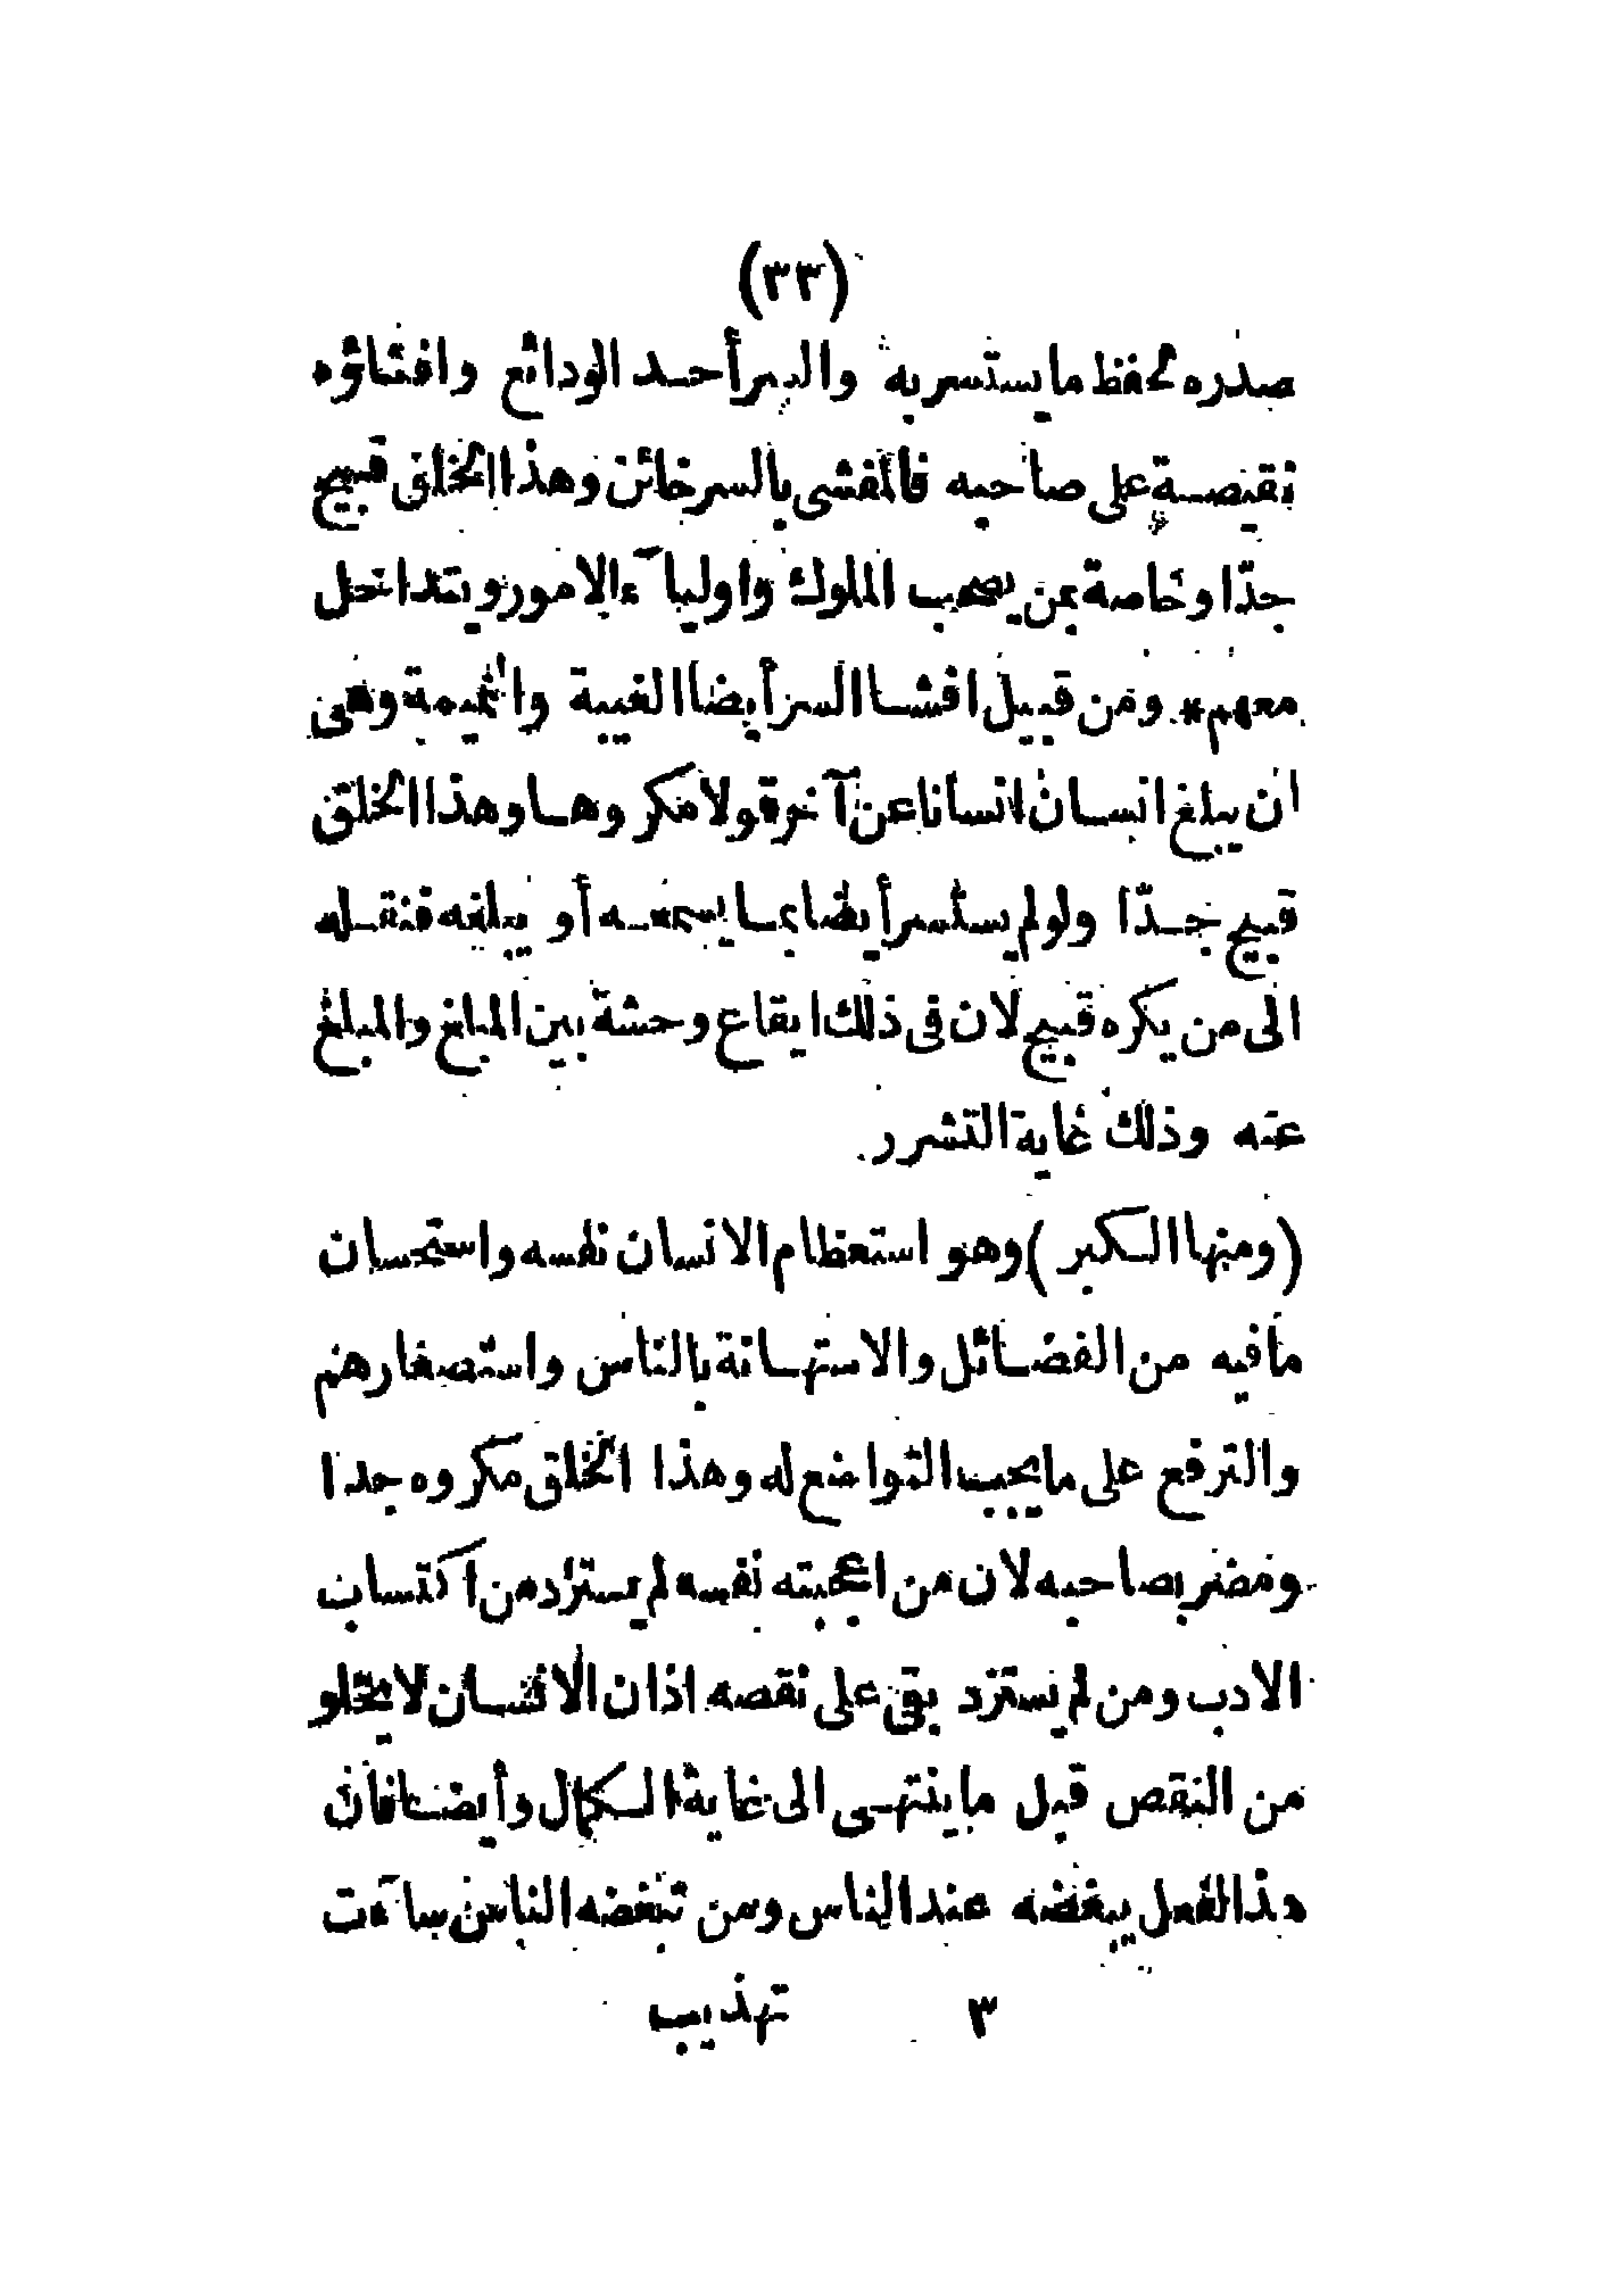 (٣٣)
صدره لحفظ ما يستسر به والسر أحد الودائع وافشاؤه
نقيصة على صاحبه فالمفشى بالسر خائن وهذا الخلق قبيح
جدّا وخاصة بمن يصحب الملوك واوليآء الامور ويتداخل
معهم * ومن قبيل افشا السر أيضا الغيبة والنميمة وهى
ان يبلغ انسان انسانا عن آخر قولا مكروها وهذا الخلق
قبيح جدّا ولو لم يستسر أيضا بما يسمعه أو يبلغه فنقله
الى من يكره قبيح لان فى ذلك ايقاع وحشة بين المبلغ والمبلغ
عنه وذلك غاية التشرر
(ومنها الكبر) وهو استعظام الانسان نفسه واستحسان
ما فيه من الفضائل والاستهانة بالناس واستصغارهم
والترفع على ما يجب التواضع له وهذا الخلق مكروه جدا
ومضر بصاحبه لان من اعجبته نفسه لم يستزد من اكتساب
الادب ومن لم يستزد بقى على نقصه اذ ان الانسان لا يخلو
من النقص قبل ما ينتهى الى غاية الكمال وأيضا فان
هذا الفعل يبغضه عند الناس ومن تبغضه الناس سآءت
٣ تهذيب